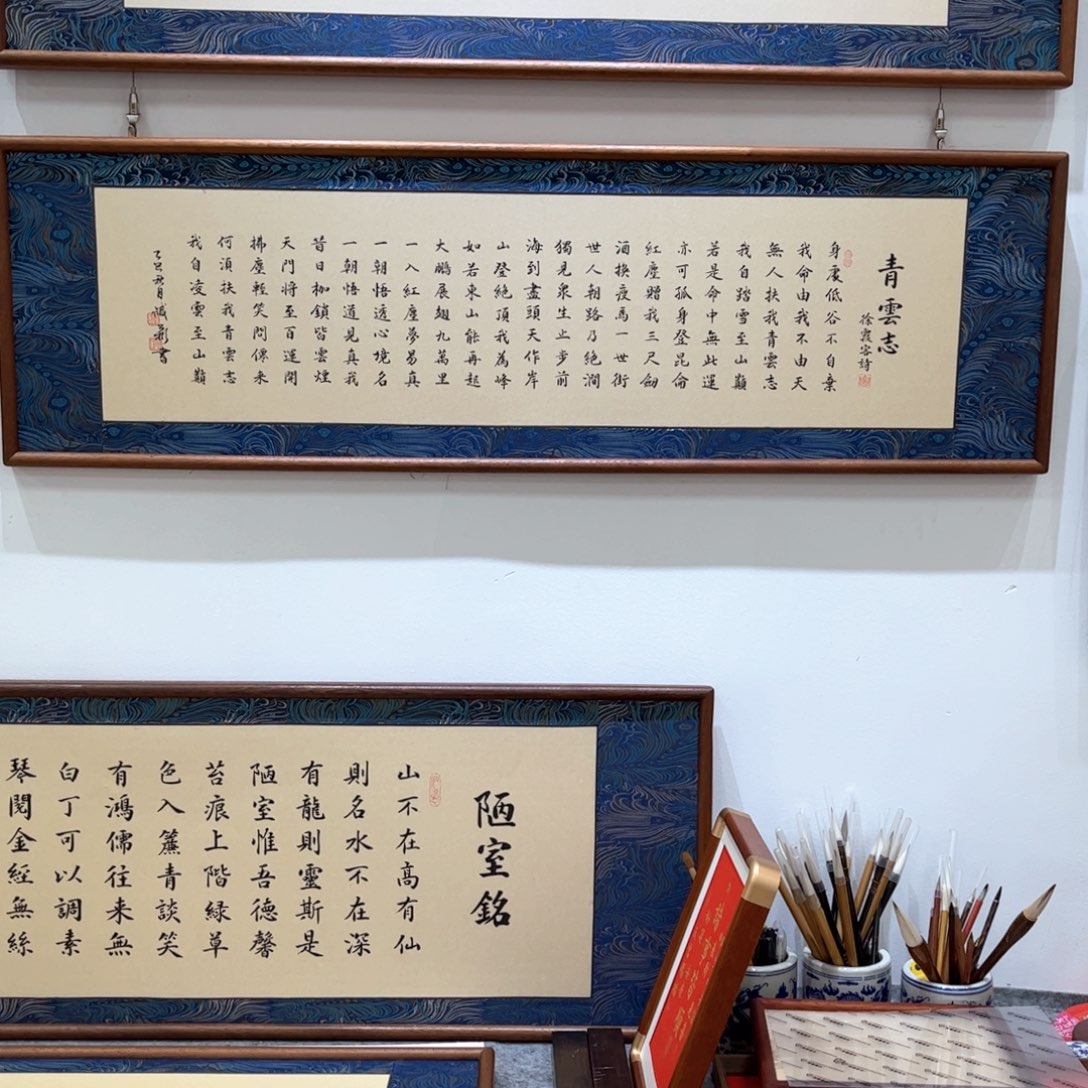 青雲志
徐霞客詩
身處低谷不自棄
我命由我不由天
無人扶我青雲志
我自踏雪至山巔
若是命中無此運
亦可孤身登昆侖
紅塵贈我三尺劍
酒換瘦馬一世街
世人朝路乃絕澗
獨見眾生止步前
海到盡頭天作岸
山登絕頂我為峰
如若東山能再起
大鵬展翅九萬里
一入紅塵夢易真
一朝悟透心境名
一朝悟道見真我
昔日枷鎖皆雲煙
天門將至百運開
拂塵輕笑問傳来
何須扶我青雲志
我自凌雲至山巔
乙巳秋月 書
陋室銘
山不在高有仙
則名水不在深
有龍則靈斯是
陋室惟吾德馨
苔痕上階緑草
色入簾青談笑
有鴻儒往来無
白丁可以調素
琴閱金經無絲